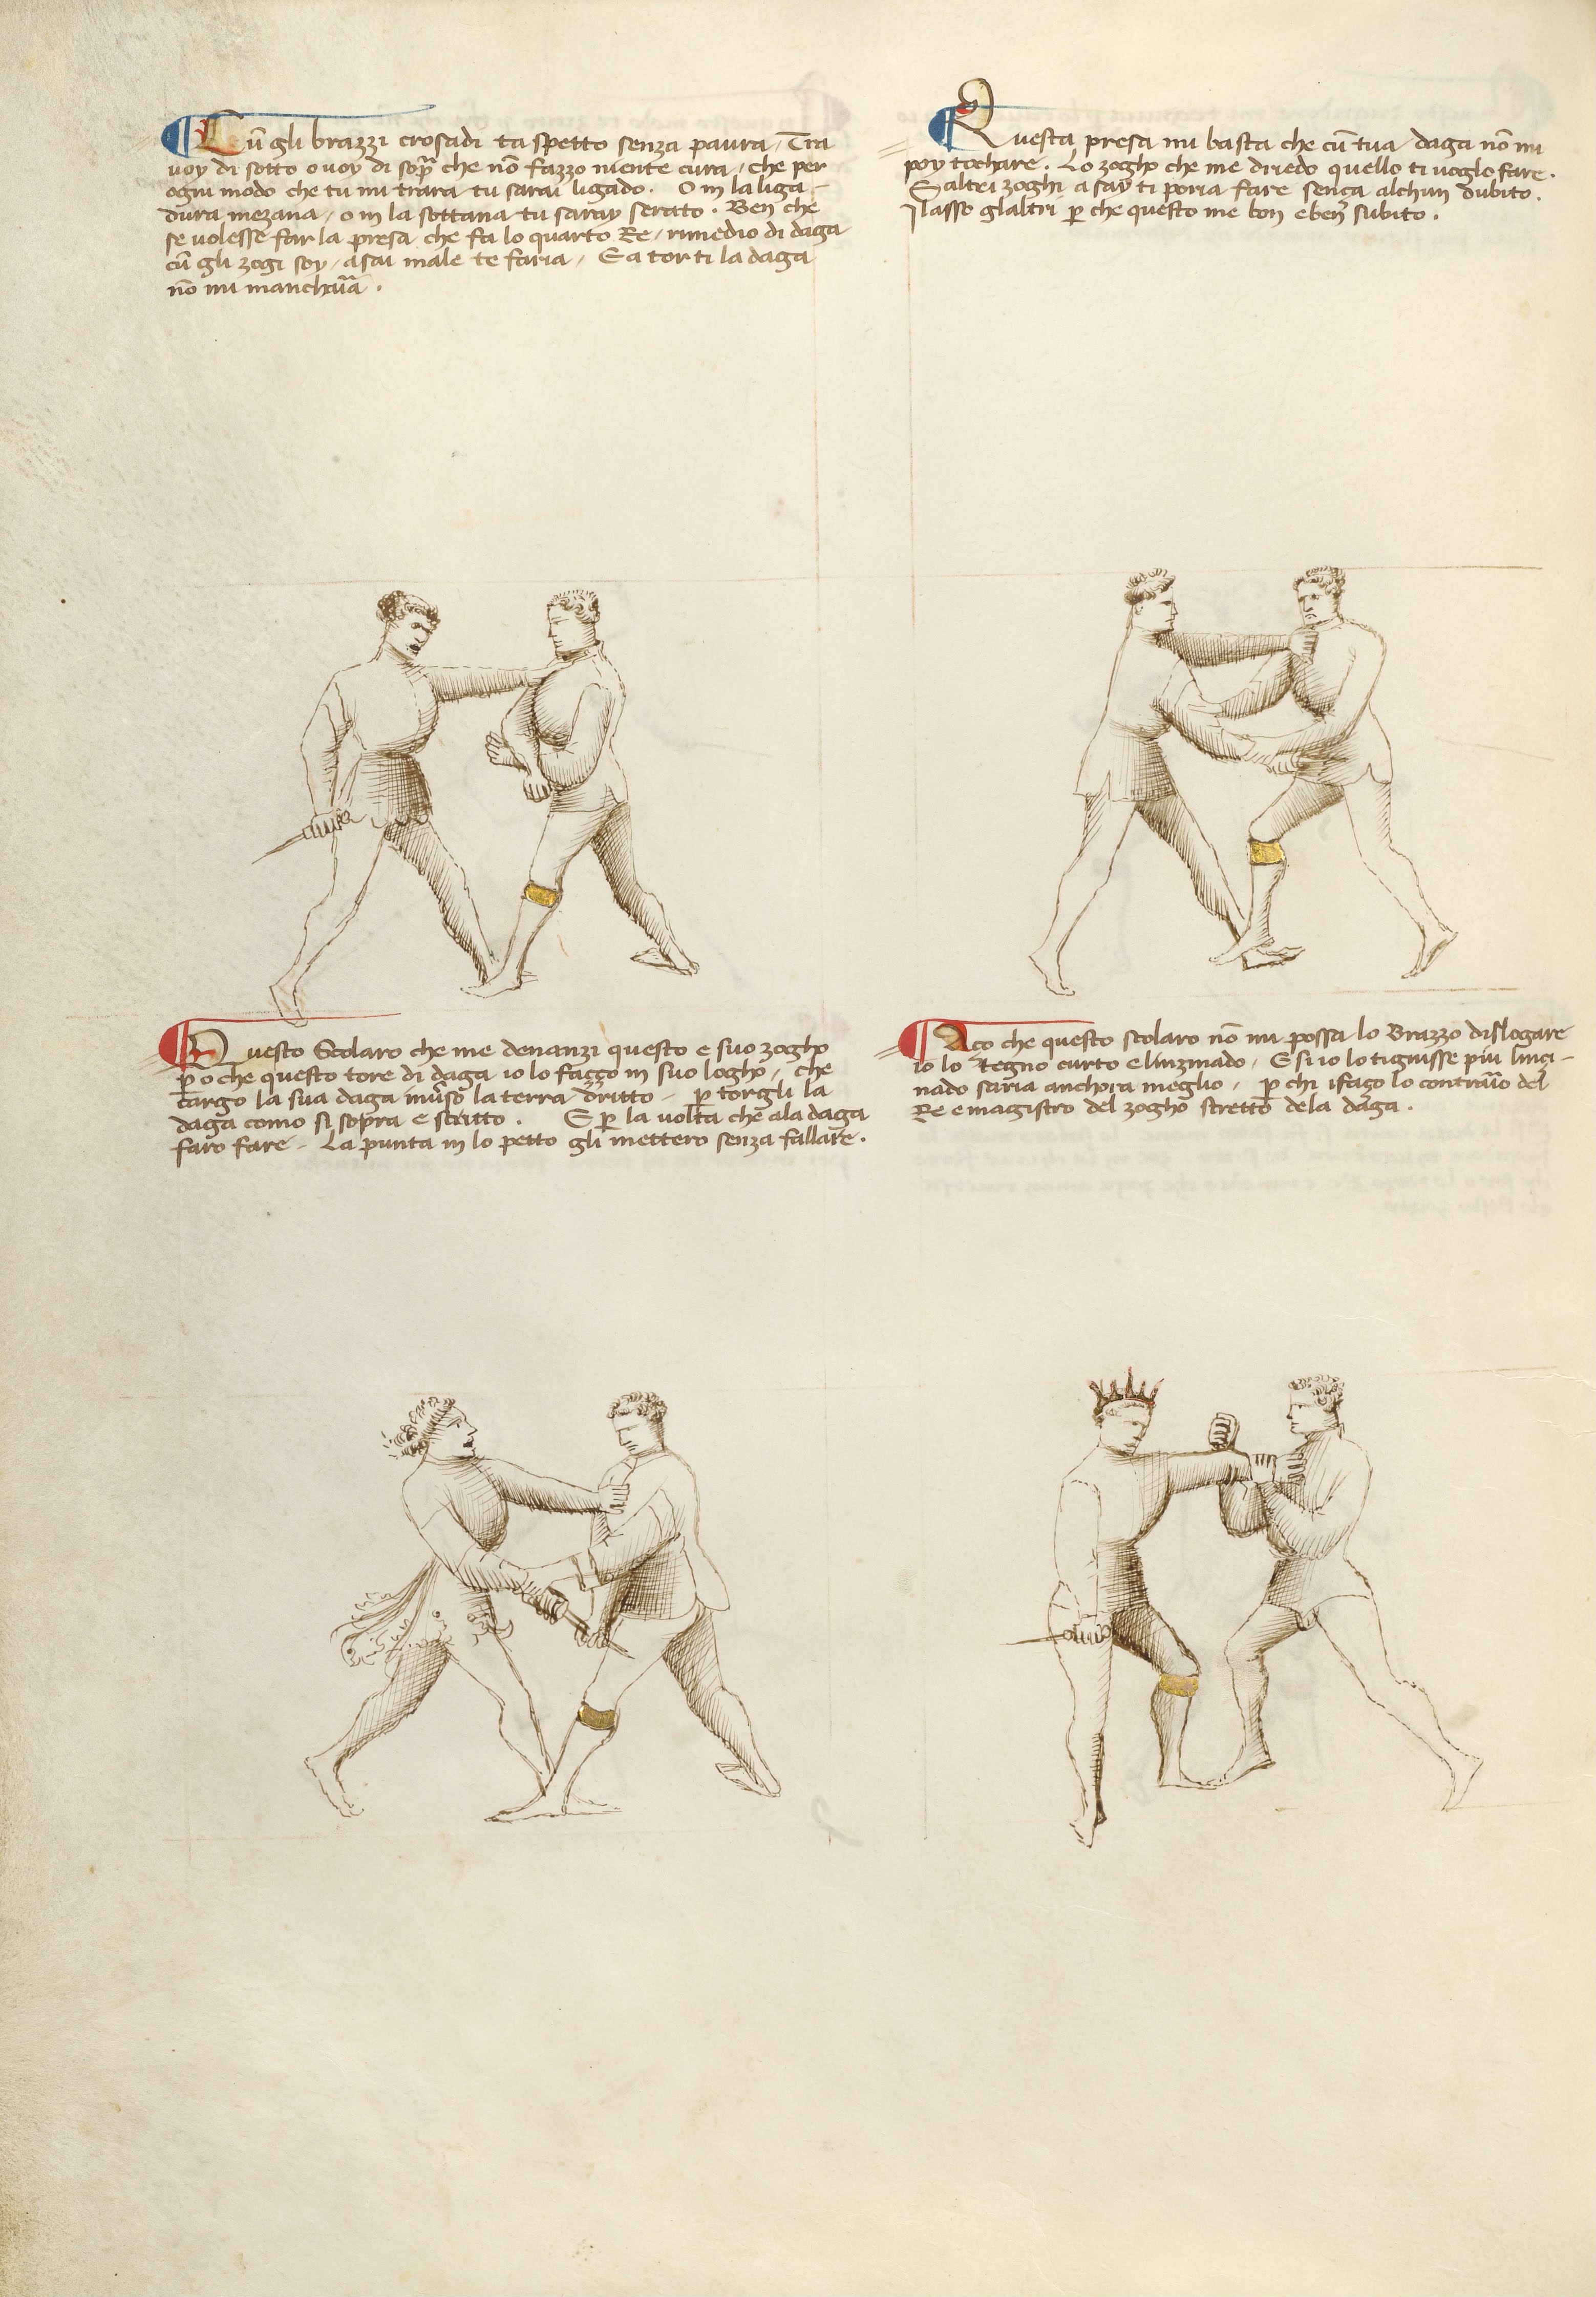 Cū gli brazzi crosadi ta spetto senza paura / Tra
voy di sotto o voy di sopͣ che nō fazzo niente cura / che per
ogni modo che tu mi trara tu sarai ligado. O in la liga-
dura mezana / o in la sottana tu saray serato. Ben che
se volesse far la presa che fa lo quarto Re / rimedio di daga
cū gli zogi soy / asai male te faria / E a torti la daga
nō mi mancharͣa.
Questa presa mi basta che cū tua daga nō mi
poy tochare. Lo zogho che me driedo quello ti voglo fare.
E altri zoghi asay ti poria fare sença alchun dubito.
I lasso gl'altri p̱ che questo me bon e ben subito.
Questo Scolaro che me denanzi questo e suo zogho
p̱o che questo tore di daga io lo faççо in suo logho / che
cargo la sua daga inv̄so la terra dritto - p̱ torgli la
daga como si sopra e scritto. E p̱ la volta che ala daga
faro fare - La punta in lo petto gli mettero senza fallare.
Aço che questo scolaro nō mi possa lo Brazzo dislogare
io lo tegno curto e linzinado / E si io lo tignisse piu linci-
nado saria anchora meglio / p̱ chi i faço lo contrāo del
Re e magistro del zogho stretto dela daga.